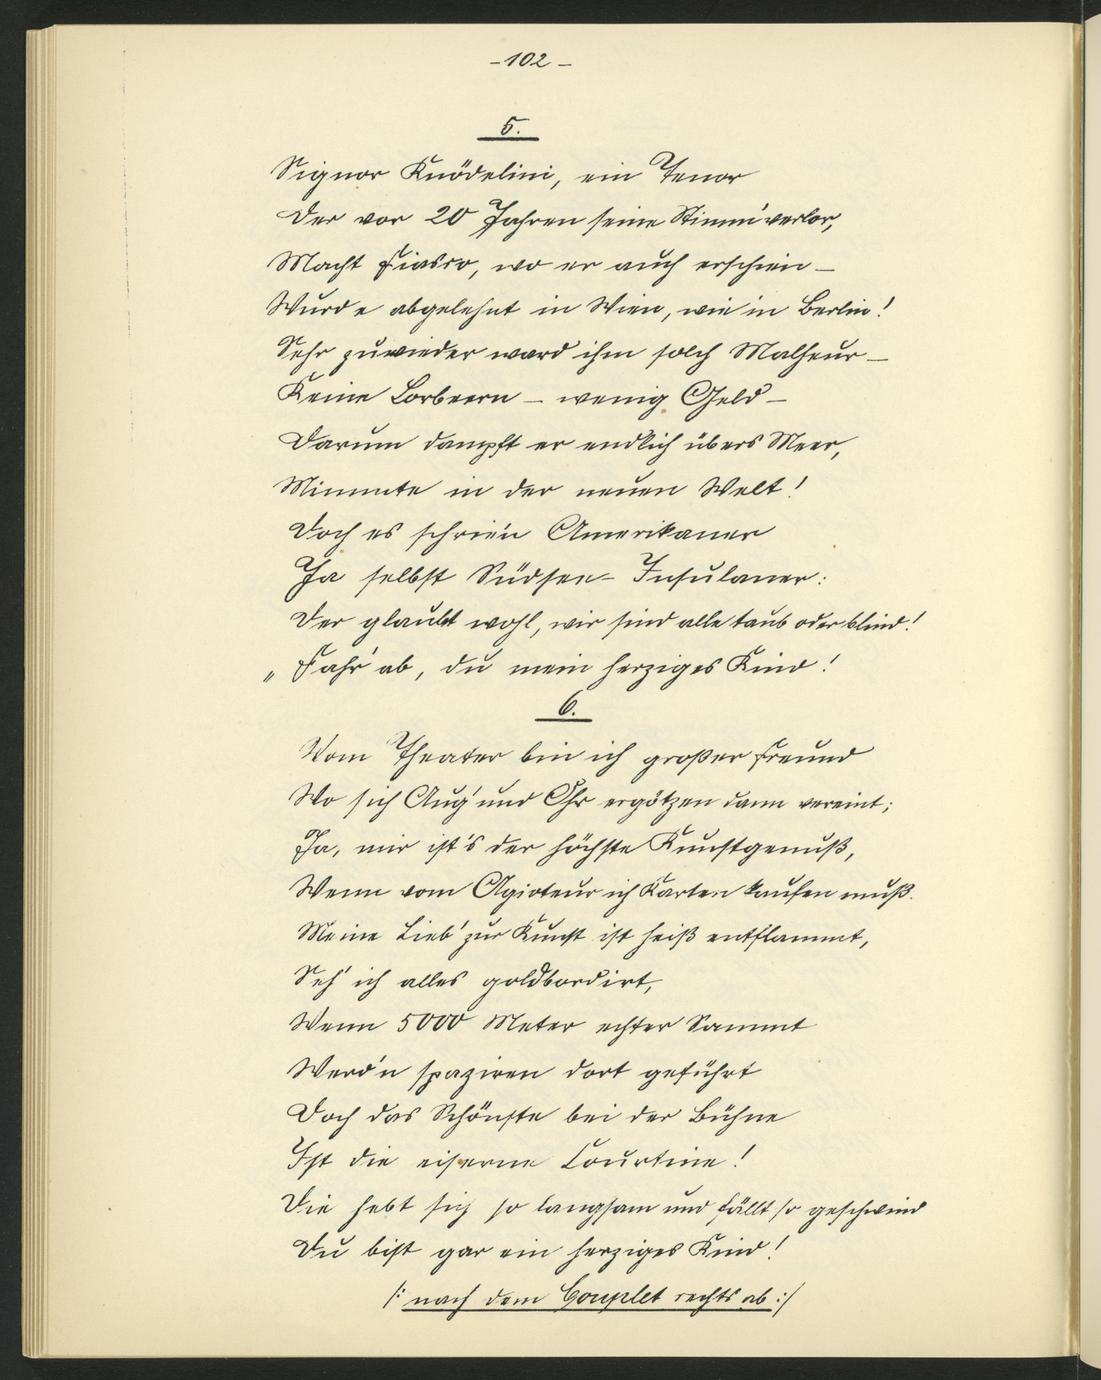 -102-
5.
Signor Knödelini, ein Tenor
Der vor 20 Jahren seine Stimm' verlor,
Macht Fiasco, wo er auch erschien –
Wurde abgelehnt in Wien, wie in Berlin!
Sehr zuwieder ward ihm solch Malheur –
Keine Lorbeern – wenig Geld –
Darum dampft er endlich übers Meer,
Mimmte in der neuen Welt!
Doch es schrien Amerikaner
Ja selbst Südsee- Insulaner:
Der glaubt wohl, wir sind alle taub oder blind!
„ Fahr' ab, du mein herziges Kind!
6.
Vom Theater bin ich großer Freund
Wo sich Aug' und Ohr ergötzen dann vereint;
Ja, mir ist's der höchste Kunstgenuß,
Wenn vom Agioteur ich Karten kaufen muß.
Meine Lieb' zur Kunst ist heiß entflammt,
Seh' ich alles goldbordirt,
Wenn 5000 Meter echter Sammt
Werd'n spaziren dort geführt
Doch das Schönste bei der Bühne
Ist die eiserne Courtine!
Die hebt sich so langsam und fällt so geschwind
Du bist gar ein herziges Kind!
/: nach dem Couplet rechts ab :/